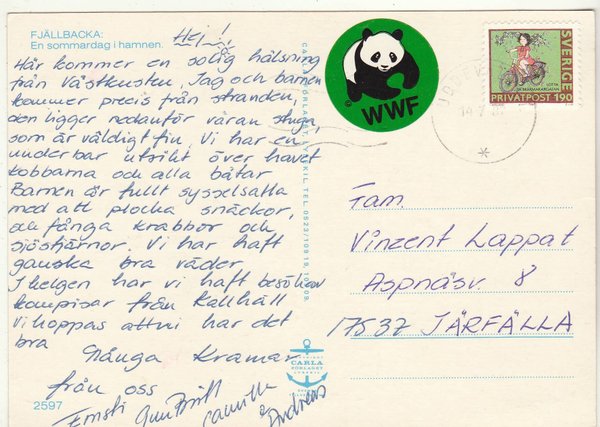 FJÄLLBACKA:
En sommardag i hamnen.
Hej!
Här kommer en solig hälsning
från Västkusten. Jag och barnen
kommer precis från stranden,
den ligger nedanför våran stuga,
som är väldigt fin. Vi har en
underbar utsikt över havet
kobbarna och alla båtar
Barnen är fullt sysselsatta
med att plocka snäckor,
och fånga krabbor och
sjöstjärnor. Vi har haft
ganska bra väder
I helgen har vi haft besök av
kompisar från Kallhäll
Vi hoppas att ni har det
bra
Många Kramar
från oss
Ernst Gun Britt Camilla
& Andreas
2597
WWF
CARLA
FÖRLAGET
LYSEKIL
SVERIGE
LOTTA
PÅ BRÅKMAKARGATAN
PRIVATPOST 190
Fam.
Vinzent Lappat
Aspnäsv. 8
17537 JÄRFÄLLA